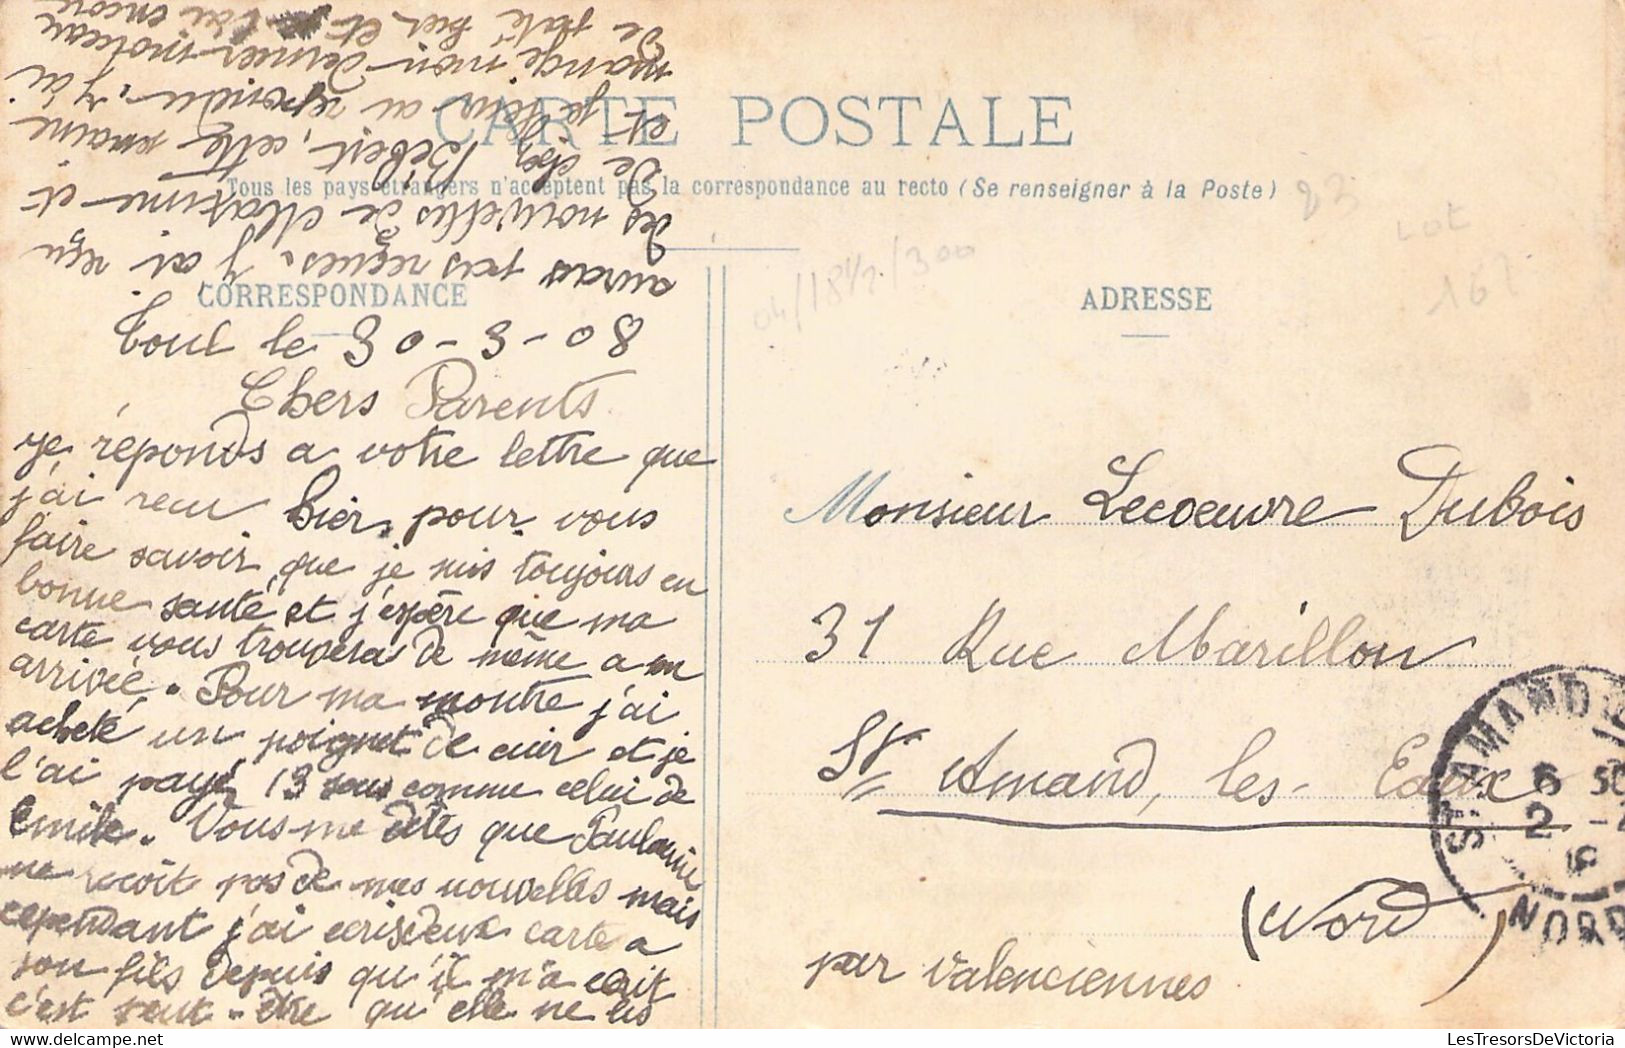 CARTE POSTALE
Tous les pays étrangers n'acceptent pas la correspondance au recto (Se renseigner à la Poste)
CORRESPONDANCE
Toul le 30-3-08
Chers Parents
je réponds a votre lettre que
j'ai recu hier, pour vous
faire savoir que je suis toujours en
bonne santé et j'espère que ma
carte vous trouveras de même a son
arrivée. Pour ma montre j'ai
acheté un poignet de cuir et je
l'ai payé 13 sous comme celui de
Emile. Vous me dites que
ne recoit pas de mes nouvelles mais
cependant j'ai écris deux carte a
son fils depuis qu'il m'a écrit
c'est peut-être qu'elle ne les
auras pas reçues. J'ai reçu
des nouvelles de Maxime et
de chez Bébert, cette semaine
et je leur ai repondu. J'ai
mangé mon dernier morceau
de paté hier et j'ai encore
ADRESSE
Monsieur Lecoeuvre Dubois
31 Rue Marillon
St Amand, les-Eaux
(Nord)
par Valenciennes
04/1812/300
23
LOT
167
ST AMAND
6
2
NORD
LesTresorsDeVictoria